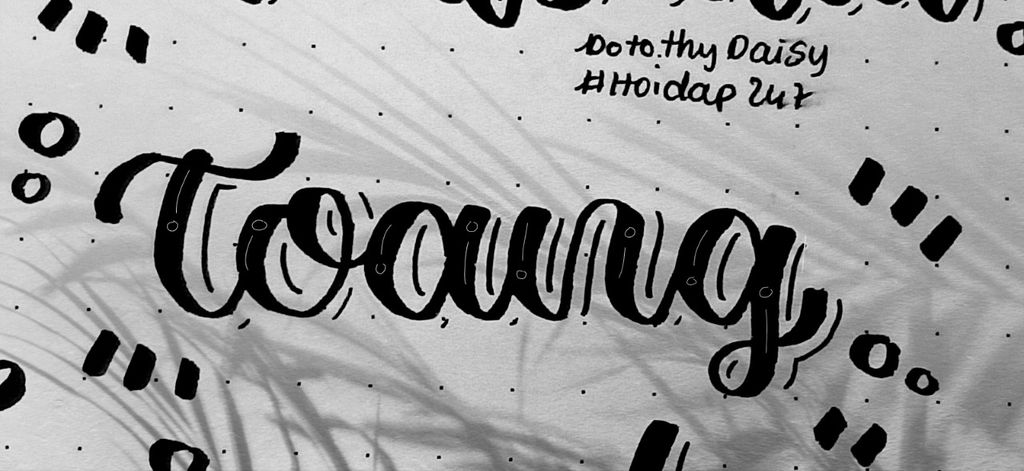 Doto.thy Daisy
#Hoidap 247
Toang